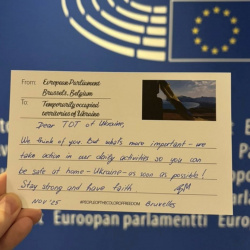 From: European Parliament
Brussels, Belgium
To: Temporarily occupied
territories of Ukraine
Dear TOT of Ukraine,
We think of you. But whats more important – we
take action in our daily activities so you can
be safe at home – Ukraine – as soon as possible!
Stay strong and have faith
NOV'25
#PEOPLEOFTHECOLOROFFREEDOM
Bruxelles
Euroopan parlamentti
Europ